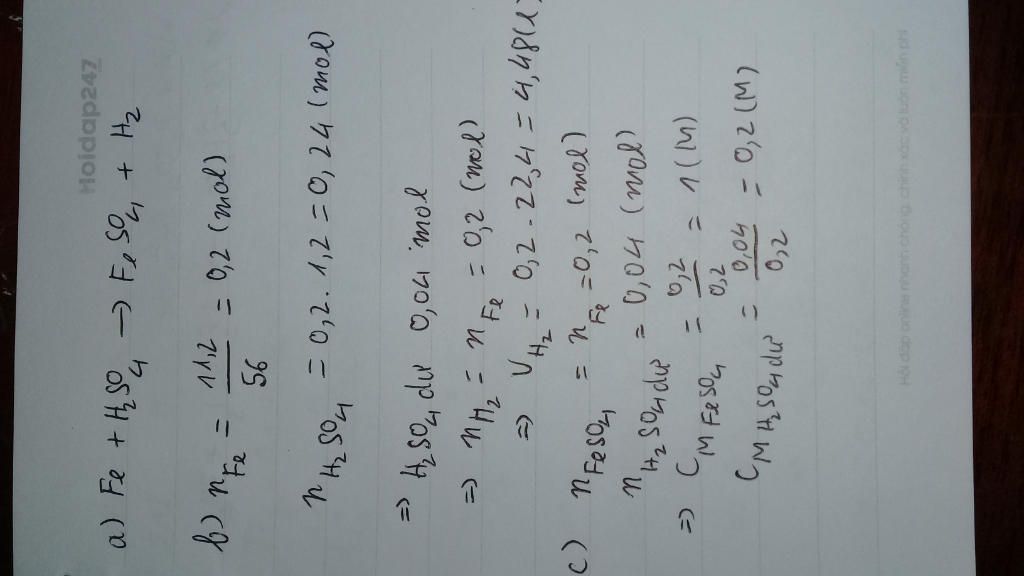 Hoidap247
a) Fe + H₂SO₄ → FeSO₄ + H₂
b) n_Fe = 11,2/56 = 0,2 (mol)
n_H₂SO₄ = 0,2 . 1,2 = 0,24 (mol)
=> H₂SO₄ dư 0,04 mol
=> n_H₂ = n_Fe = 0,2 (mol)
=> V_H₂ = 0,2 . 22,4 = 4,48(l)
c) n_FeSO₄ = n_Fe = 0,2 (mol)
n_H₂SO₄ dư = 0,04 (mol)
=> C_M FeSO₄ = 0,2/0,2 = 1 (M)
C_M H₂SO₄ dư = 0,04/0,2 = 0,2 (M)
Hỏi đáp online nhanh chóng, chính xác và luôn miễn phí